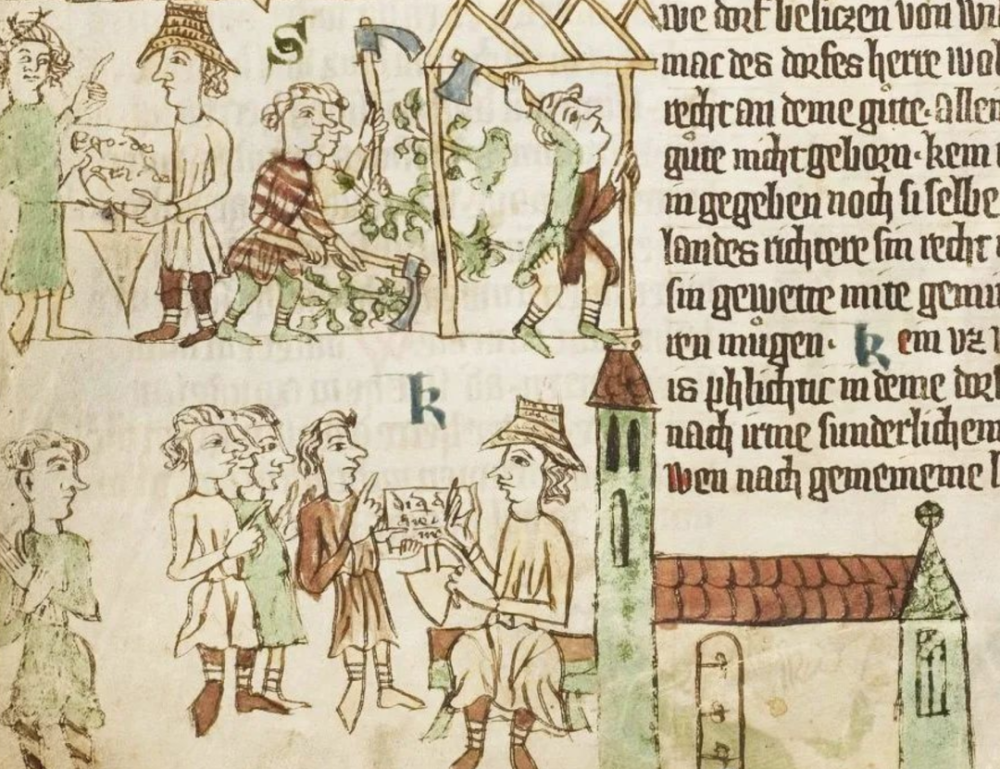 S
ego · de
k
we dorf besiczen von wi
mac des dorfes herre wol
recht an deme gute · allein
gute nicht geborn · kem
in gegeben noch si selbe
landes richtere sin recht
sin gewette mite gemin
ren mugen · k em vz
is phlichtic in deme dorf
nach irme sunderlichem
wen nach gemeineme l